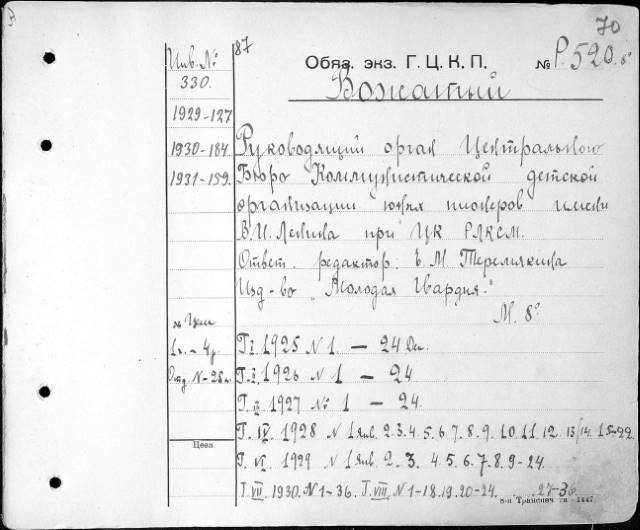 70
Инв. №
87
Обяз. экз. Г. Ц. К. П.
№ Р. 520. 8°
330.
Вожатый
1929-127
1930-184.
Руководящий орган Центрального
1931-139.
Бюро Коммунистической детской
организации юных пионеров имени
В. И. Ленина при ЦК РЛКСМ.
Ответ. редактор:
Изд-во „Молодая Гвардия."
М. 8°
№
Г. I. 1925 N 1. — 24
N-25
Г. II. 1926 N 1 — 24
Г. III 1927 № 1 — 24.
Г. IV. 1928 N 1 янв. 2. 3. 4. 5. 6 7. 8. 9. 10. 11. 12. 13/14. 15-22
Цена
Г. VI. 1929 N 1 янв. 2. 3. 4. 5. 6. 7. 8. 9-24.
Г. VII. 1930. N 1-36. Г. VIII. N 1-18. 19. 20-24. 27-36